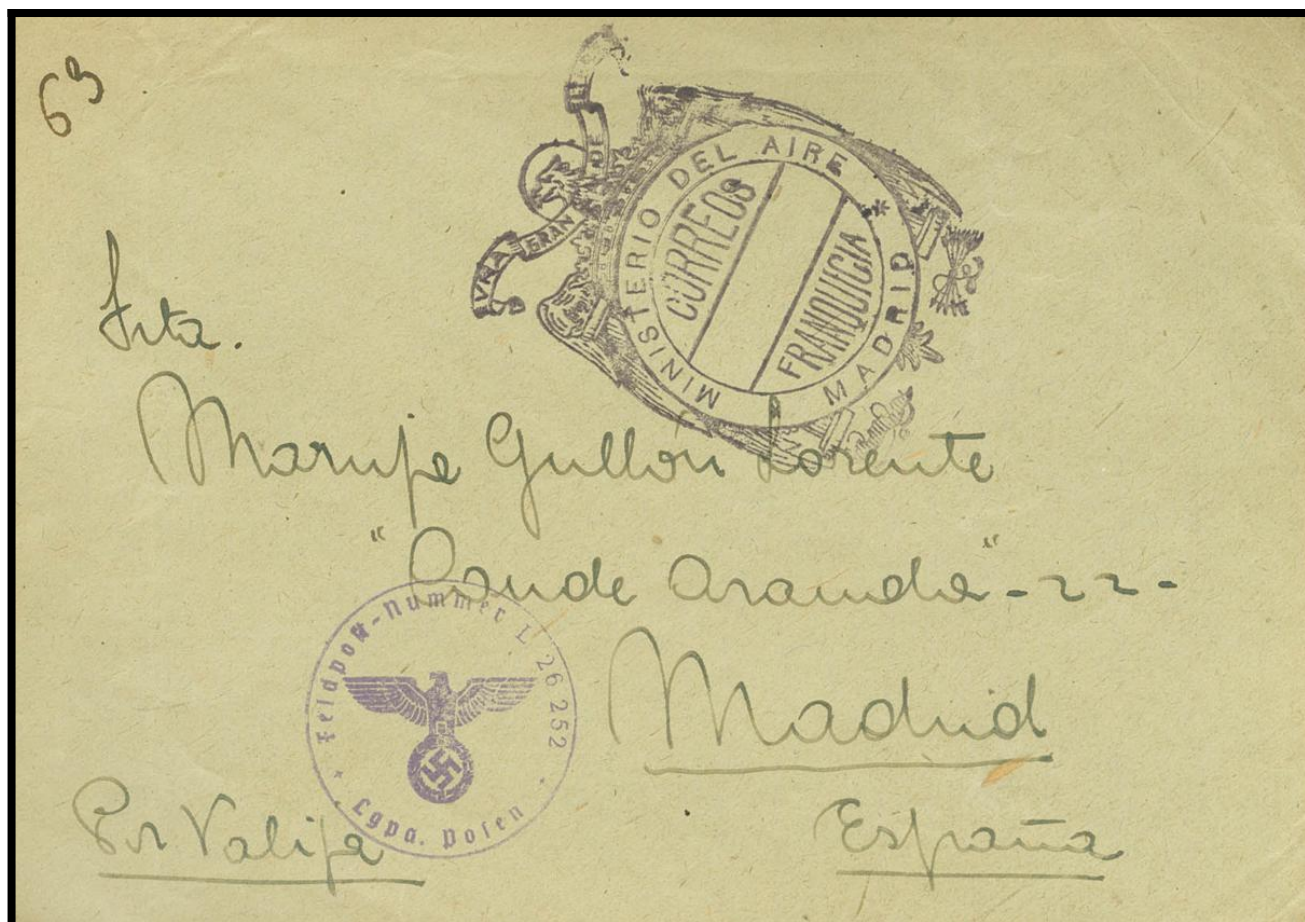 63
UNA GRANDE
MINISTERIO DEL AIRE
CORREOS
FRANQUICIA
MADRID
Srta.
Maruja Gullón Lorente
"Conde Aranda" - 22 -
Madrid
España
Por Valija
Feldpost-Nummer L 26 252
Lgpa. Posen